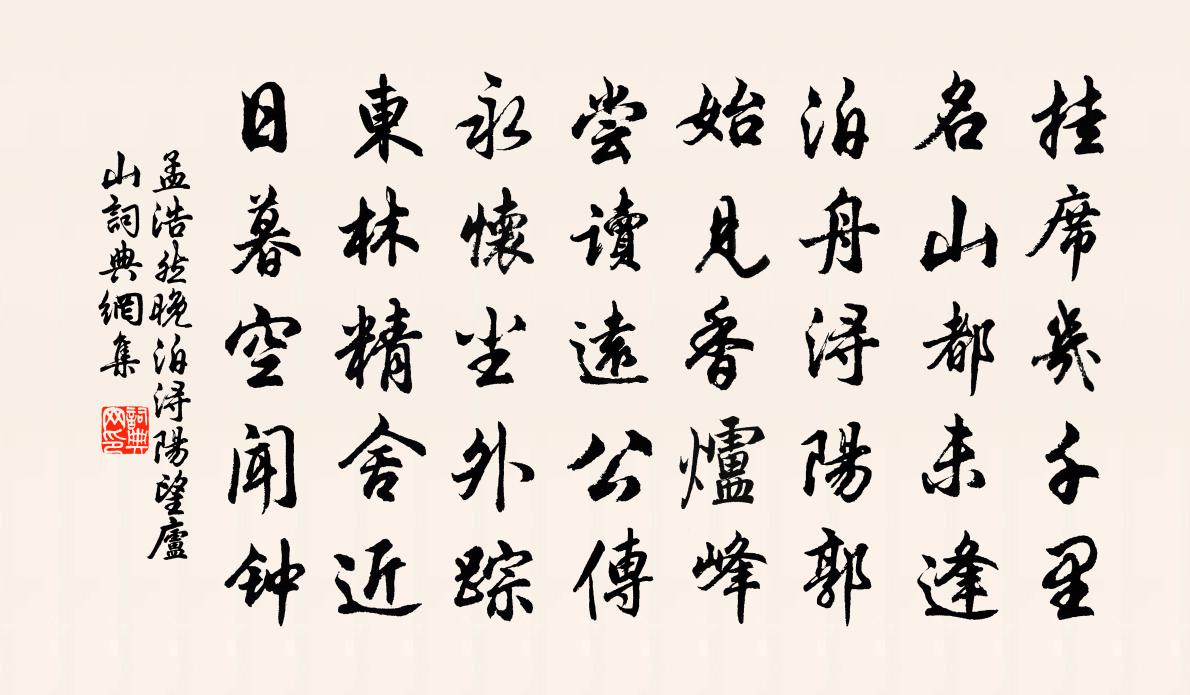 挂席幾千里
名山都未逢
泊舟浔陽郭
始見香爐峰
尝讀遠公傳
永懷尘外踪
東林精舍近
日暮空闻钟
孟浩然晚泊浔陽望廬
山詞典網集
詞典网印